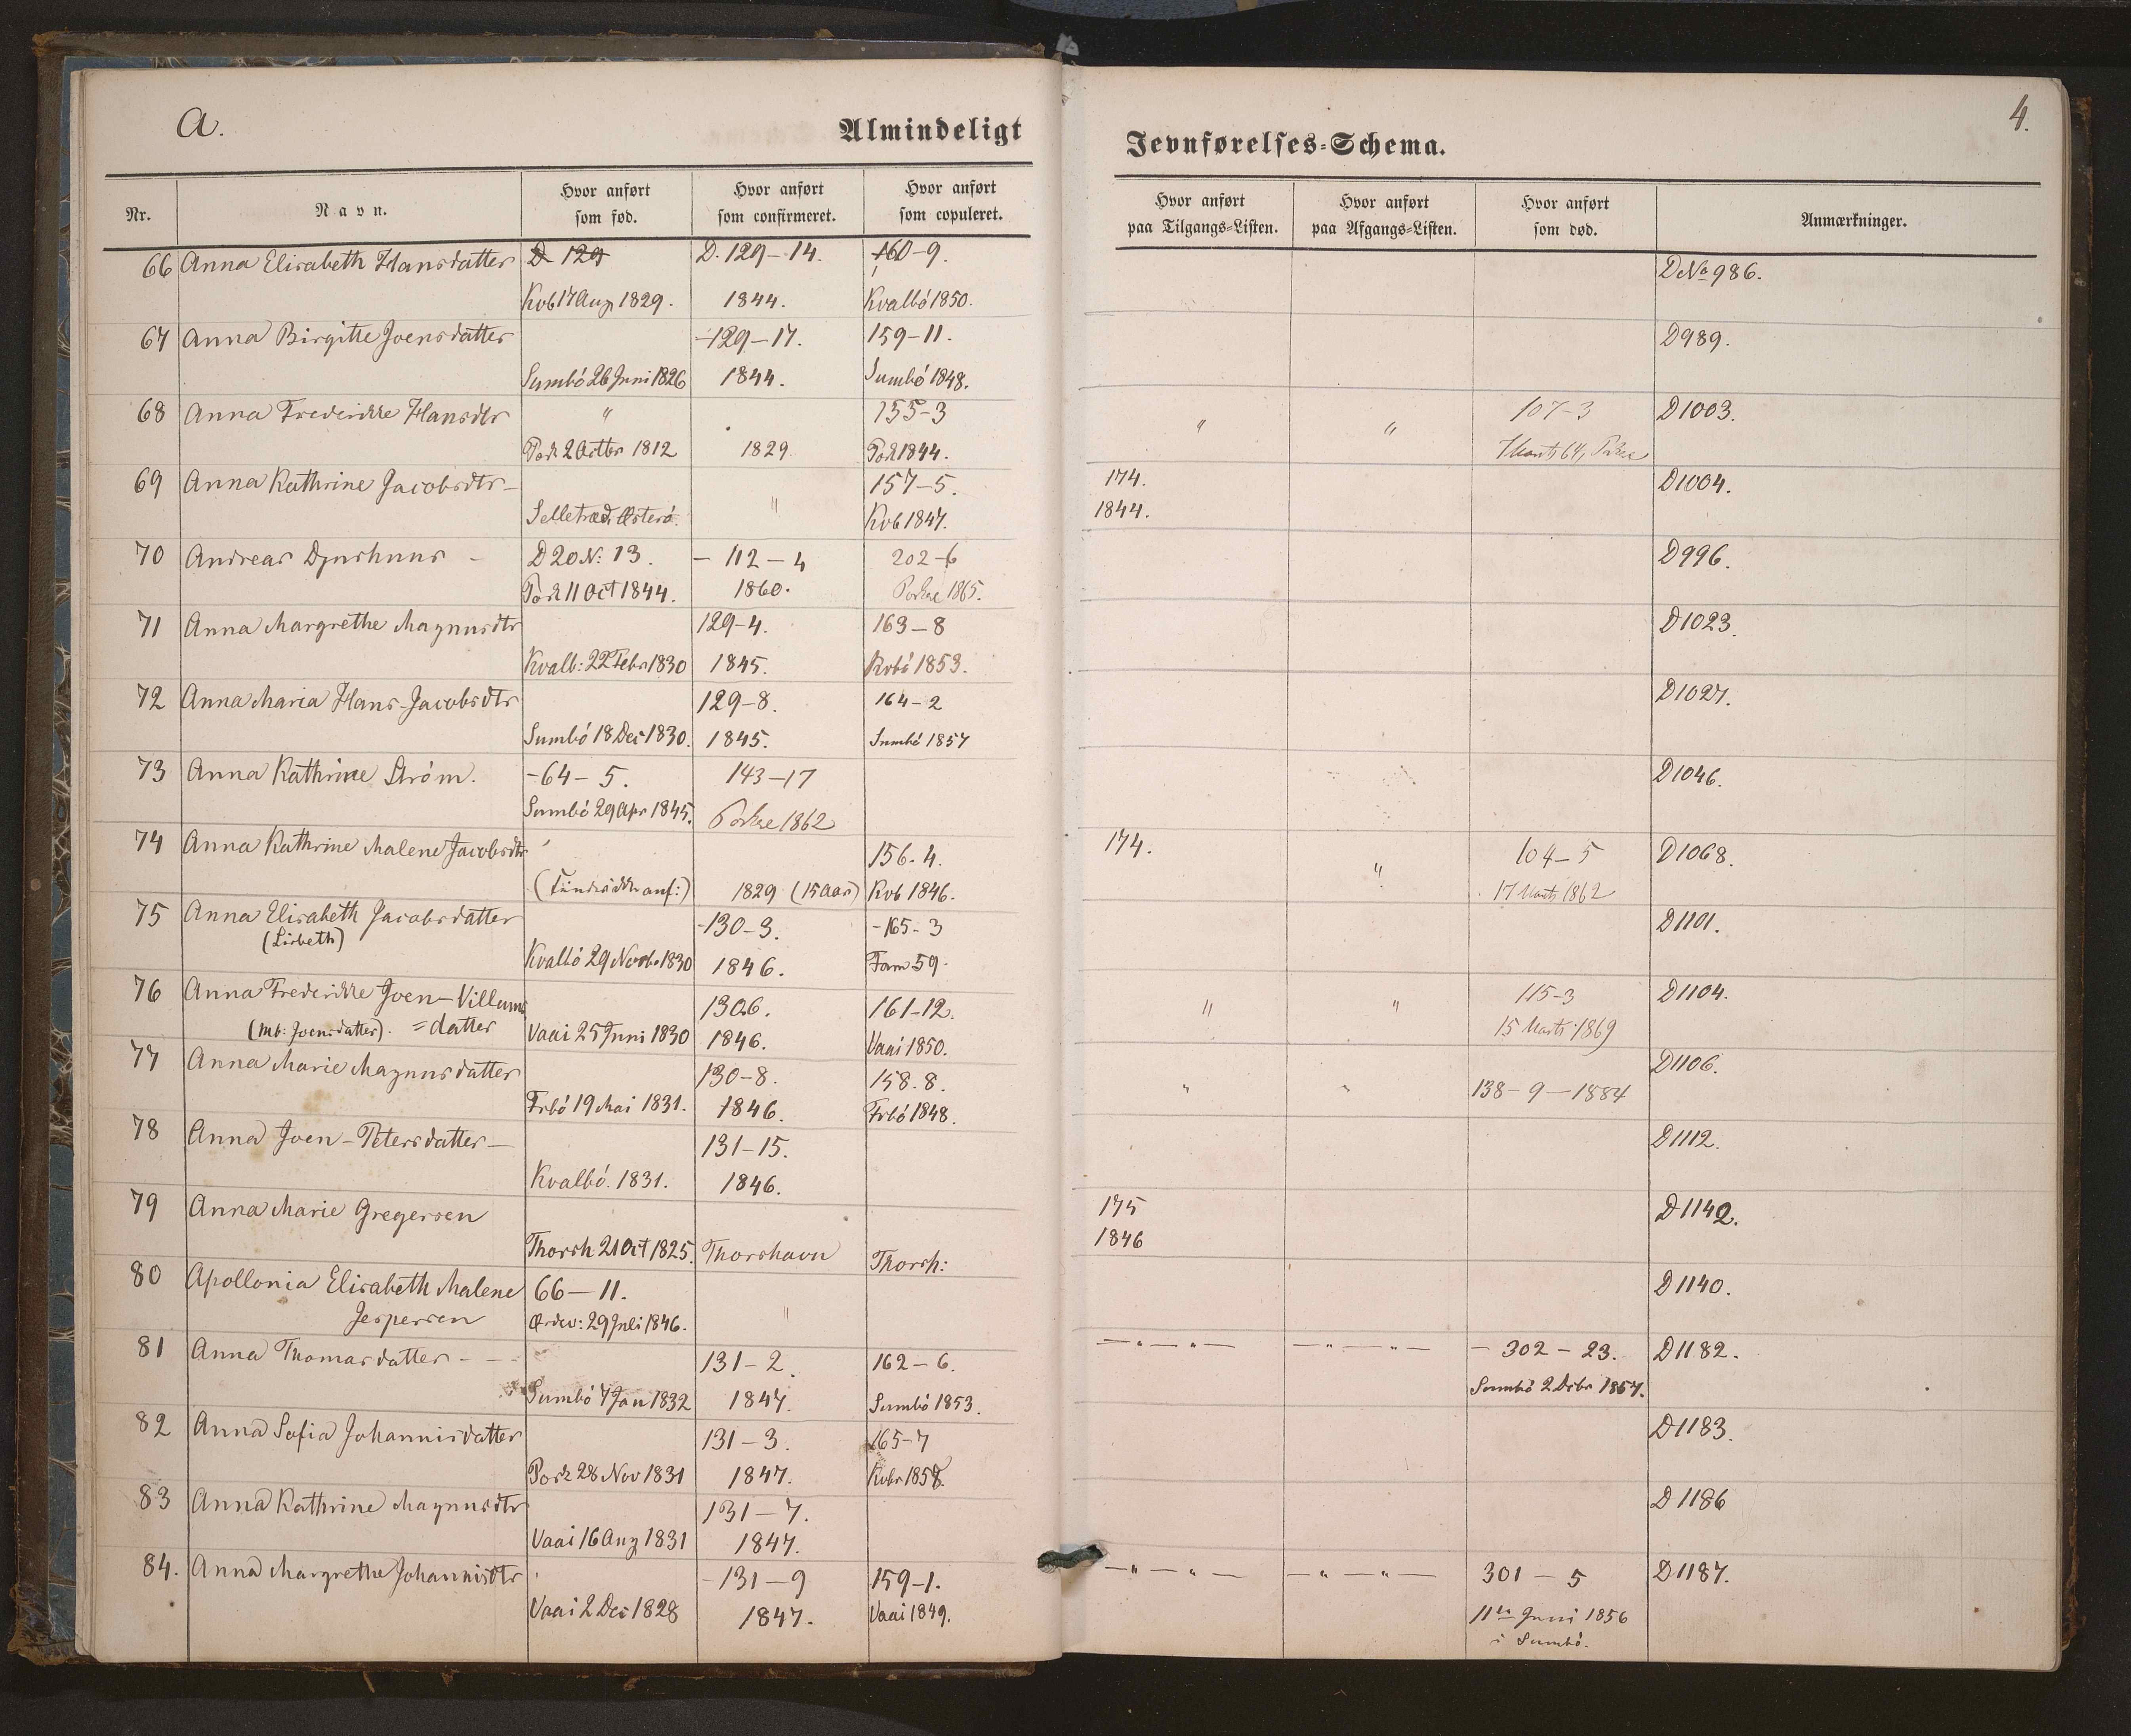 A.
Almindeligt
Jevnførelses-Schema.
4.
Nr.
Navn.
Hvor anført som fød.
Hvor anført som confirmeret.
Hvor anført som copuleret.
Hvor anført paa Tilgangs-Listen.
Hvor anført paa Afgangs-Listen.
Hvor anført som død.
Anmærkninger.
66 Anna Elisabeth Hansdatter D. 129 D. 129-14. 160-9. D No 986.
Kvb 17 Aug 1829. 1844. Kvalbó 1850.
67 Anna Birgitte Joensdatter -129-17. 159-11. D989.
Sumbó 26 Juni 1826 1844. Sumbó 1848.
68 Anna Frederikke Hansdtr " 155-3 " " 107-3 D1003.
Pork 2 Octbr 1812 1829 Pork 1844. Marts 64,
69 Anna Kathrine Jacobsdtr- 157-5. 174. D1004.
Selletræd, Østerö. " Kvb 1847. 1844.
70 Andreas Djurhuus - D20 N: 13. - 112-4 202-6 D996.
Pork 11 Oct 1844. 1860. Porkre 1865.
71 Anna Margrethe Magnusdtr 129-4. 163-8 D1023.
Kvalb: 22 Febr 1830 1845. Kvbó 1853.
72 Anna Maria Hans-Jacobsdtr 129-8. 164-2 D1027.
Sumbó 18 Dec 1830. 1845. Sumbó 1857
73 Anna Kathrine Stróm. -64-5. 143-17 D1046.
Sumbó 29 Apr 1845. Porkre 1862
74 Anna Kathrine Malene Jacobsdtr 156-4. 174. " 104-5 D1068.
1829 (15 Aar) Kvb 1846. 17 Marts 1862
75 Anna Elisabeth Jacobsdatter -130-3. -165-3 D1101.
(Lisbeth)
Kvalbó 29 Novb. 1830 1846. Fam 59.
76 Anna Frederikke Joen-Villums 1306. 161-12. " " 115-3 D1104.
(Mb: Joensdatter). =datter Vaai 25 Juni 1830 1846. Vaai 1850. 15 Marts 1869
77 Anna Marie Magnusdatter 130-8. 158.8. " " 138-9-1884 D1106.
Frbó 19 Mai 1831. 1846. Frbó 1848.
78 Anna Joen-Petersdatter- 131-15. D1112.
Kvalbó. 1831. 1846.
79 Anna Marie Gregersen 175 D1142.
Thorsh 21 Oct 1825. Thorshavn Thorsh: 1846
80 Apollonia Elisabeth Malene 66-11. D1140.
Jespersen Ørdev: 29 Juli 1846. "
81 Anna Thomasdatter - - 131-2. 162-6. -"-"- -"-"- - 302-23. D1182.
Sumbó 7 Jan 1832 1847. Sumbó 1853. Sumbó 2 Dcbr 1857.
82 Anna Sofia Johannisdatter 131-3. 165-7 D1183.
Pork 28 Nov 1831 1847. Kvbr 1858.
83 Anna Kathrine Magnusdtr 131-7. D1186
Vaai 16 Aug 1831 1847.
84. Anna Margrethe Johannisdtr -131-9 159-1. -"-"- -"-"- 301-5 D1187.
Vaai 2 Dec 1828 1847. Vaai 1849. 11te Juni 1856
i Sumbó.